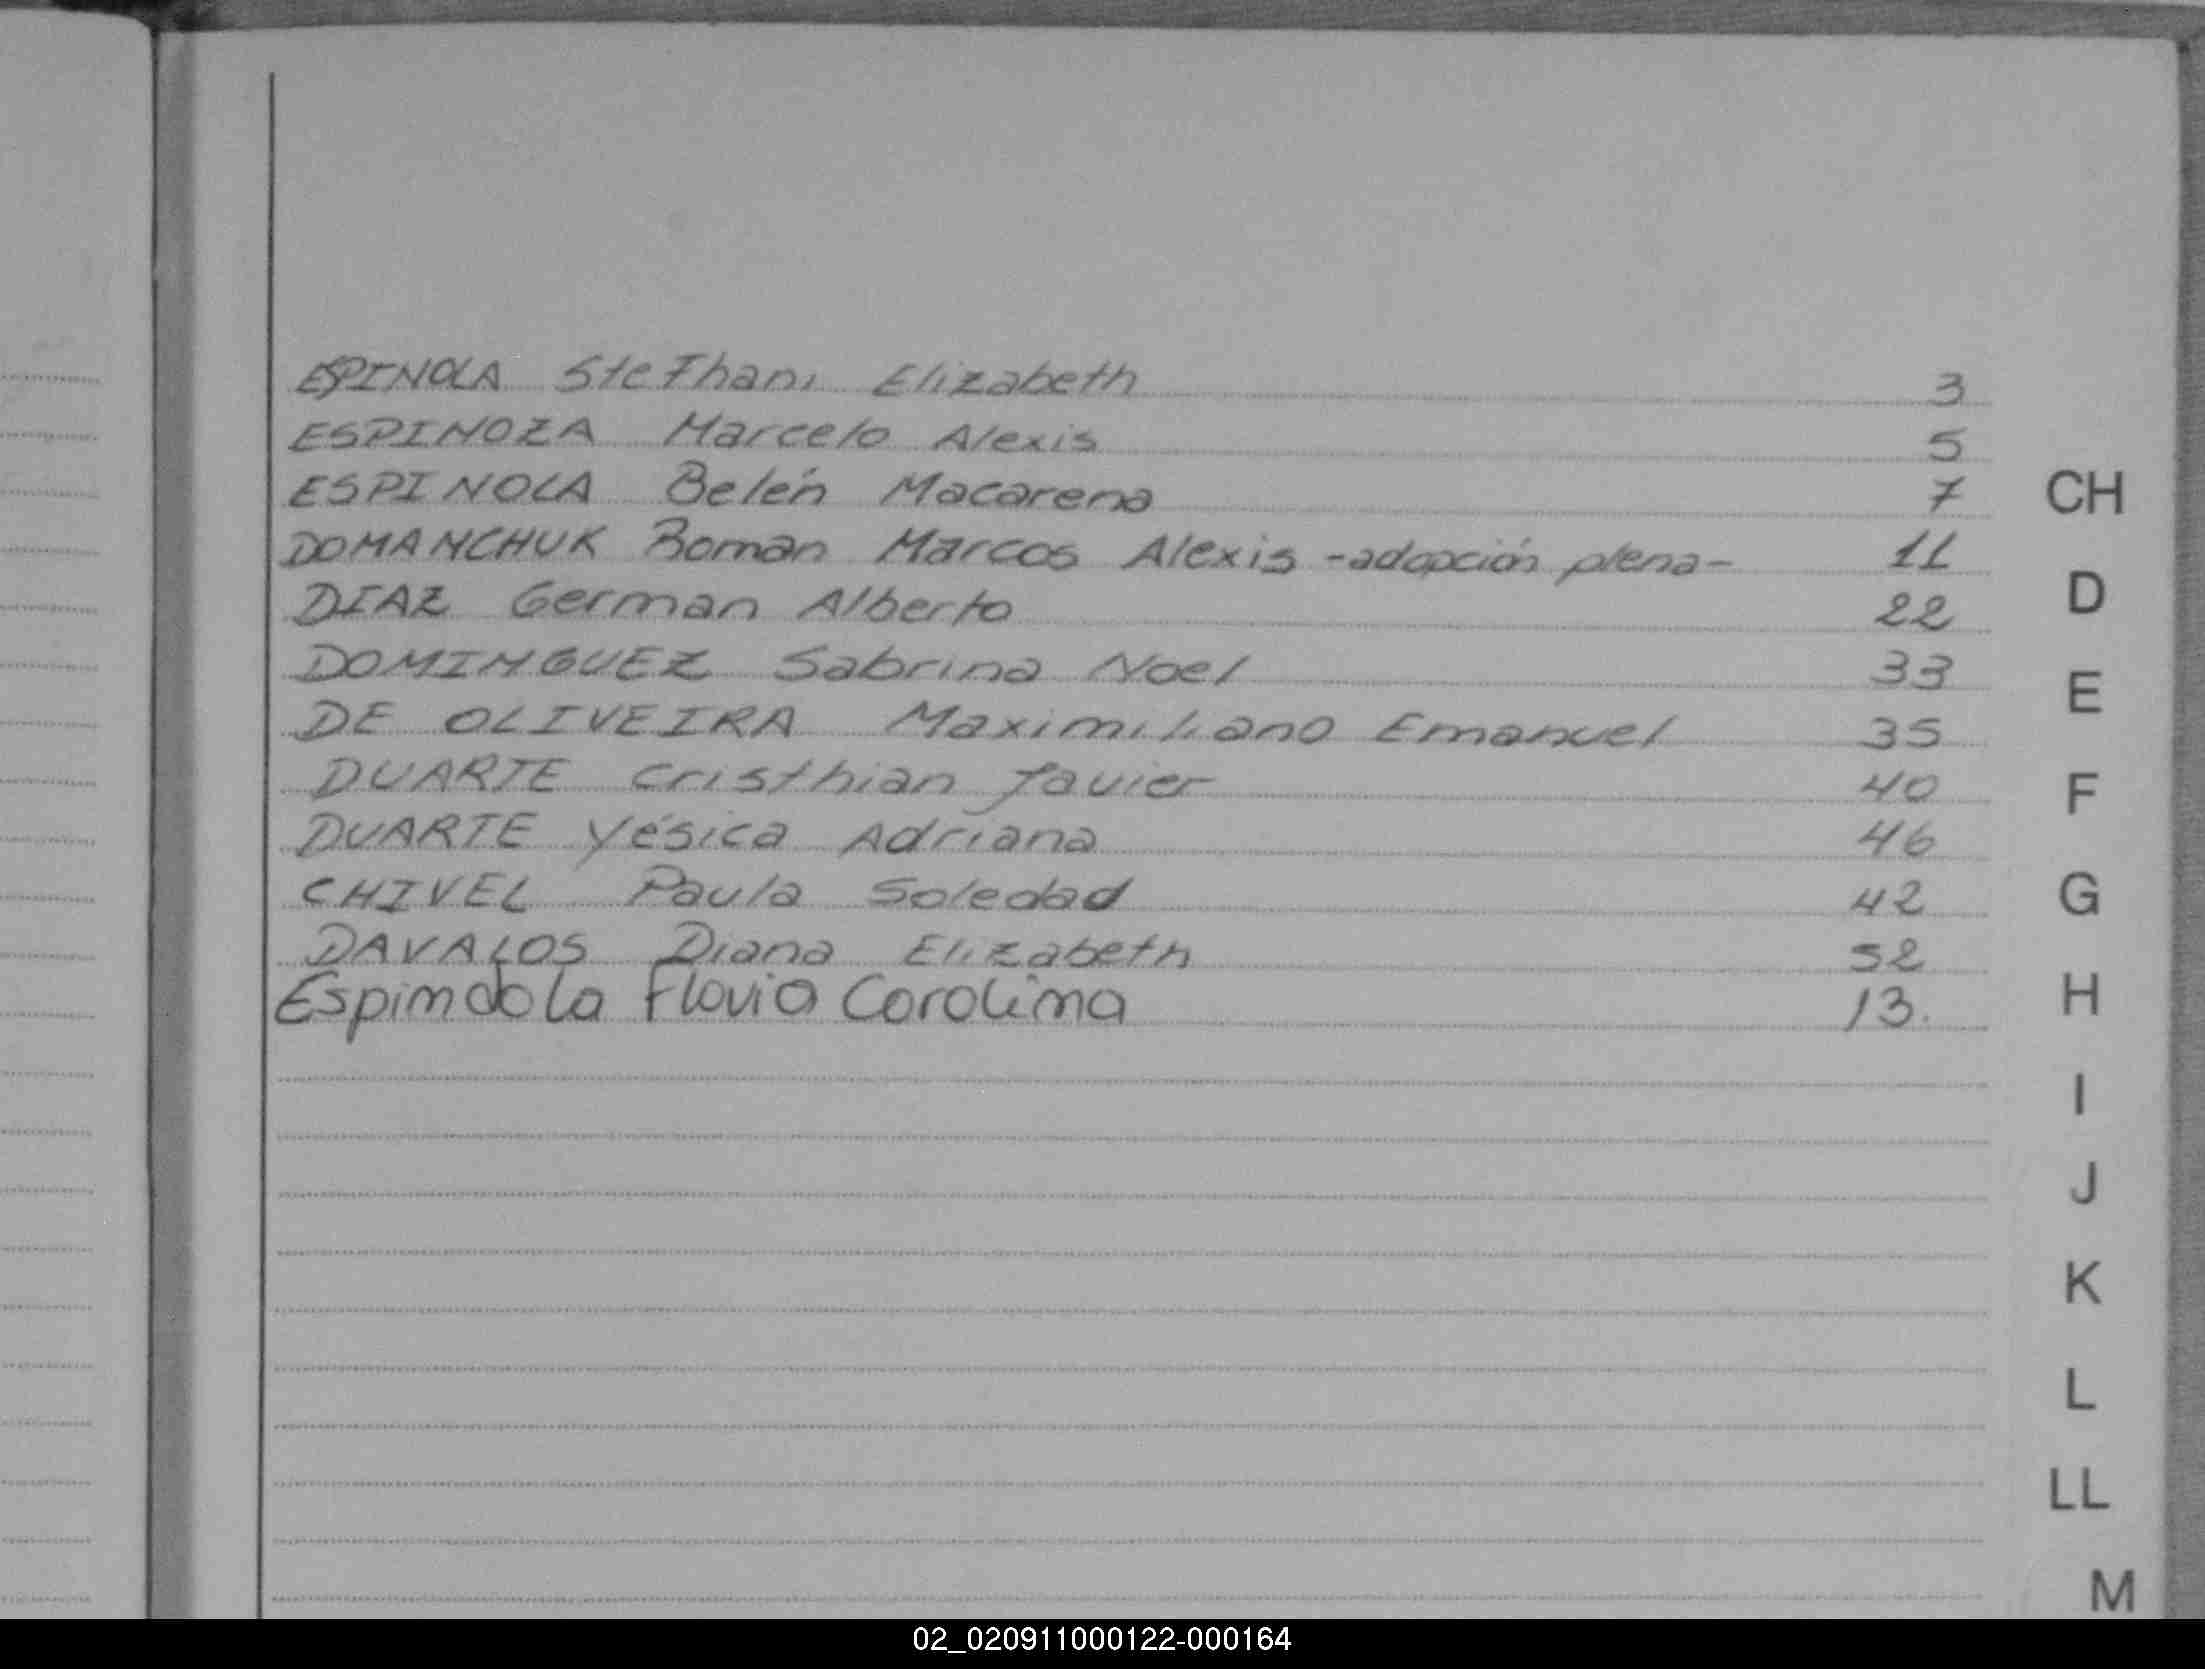 ESPINOLA Stefhani Elizabeth 3
ESPINOZA Marcelo Alexis 5
ESPINOLA Belén Macarena 7
CH
DOMANCHUK Roman Marcos Alexis -adopción plena- 11
D
DIAZ German Alberto 22
DOMINGUEZ Sabrina Noel 33
E
DE OLIVEIRA Maximiliano Emanuel 35
DUARTE Cristhian Javier 40
F
DUARTE Yésica Adriana 46
CHIVEL Paula Soledad 42
G
DAVALOS Diana Elizabeth 52
Espindola Flavia Carolina 13.
H
I
J
K
L
LL
M
02_020911000122-000164